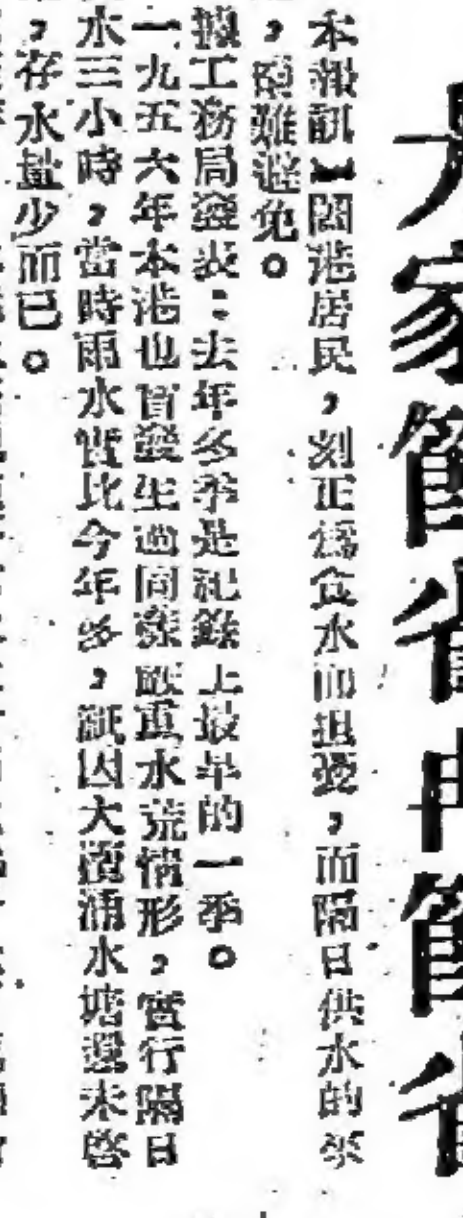 大家節省再節省
本報訊 闔港居民，刻正為食水而担憂，而隔日供水的來
，頗難避免。
據工務局發表：去年冬季是紀錄上最旱的一季。
一九五六年本港也曾發生過同樣嚴重水荒情形，實行隔日
水三小時，當時雨水實比今年多，祗因大欖涌水塘還未啓
，存水量少而已。